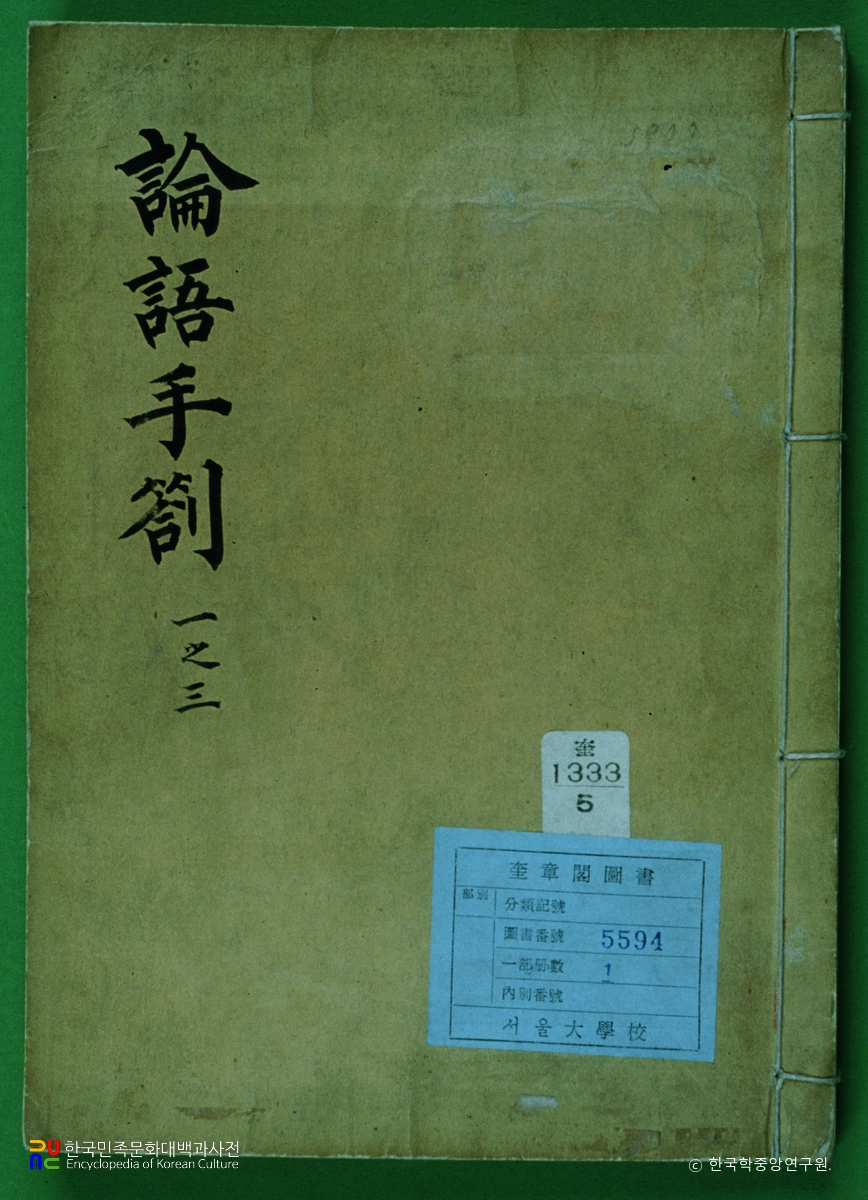 論語手劄
一之三
奎
1333
5
奎章閣圖書
部別
分類記號
圖書番號 5594
一部册數 1
內別番號
서울大學校
한국민족문화대백과사전
Encyclopedia of Korean Culture
© 한국학중앙연구원.